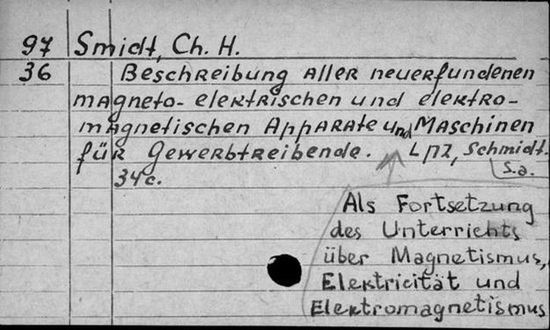 97 Smidt, Ch. H.
36 Beschreibung aller neuerfundenen
magneto-elektrischen und elektro-
magnetischen Apparate und Maschinen
für Gewerbtreibende. Lpz, Schmidt.
34c. s.a.
Als Fortsetzung
des Unterrichts
über Magnetismus,
Elektricität und
Elektromagnetismus